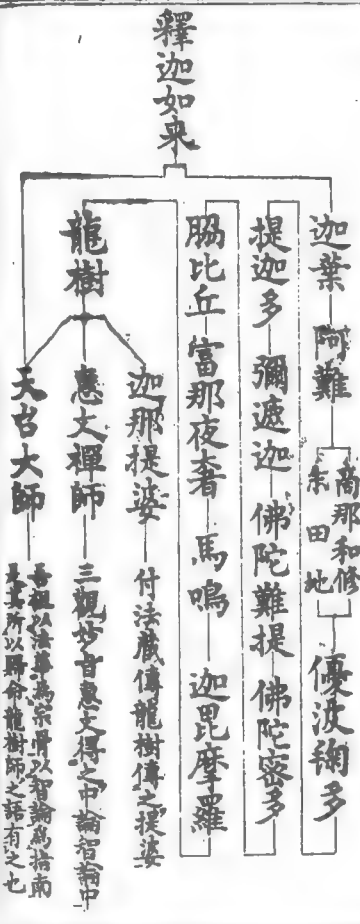 釋迦如来
迦葉 阿難 商那和修 末田地 優波毱多
提迦多 彌遮迦 佛陀難提 佛陀密多
脇比丘 富那夜奢 馬鳴 迦毘摩羅
龍樹
迦那提婆 付法藏傳龍樹傳之提婆
惠文禪師 三觀妙旨惠文得之中論智論中
天台大師 吾祖以法華為宗骨以智論為指南
是其所以歸命龍樹師之語有之也